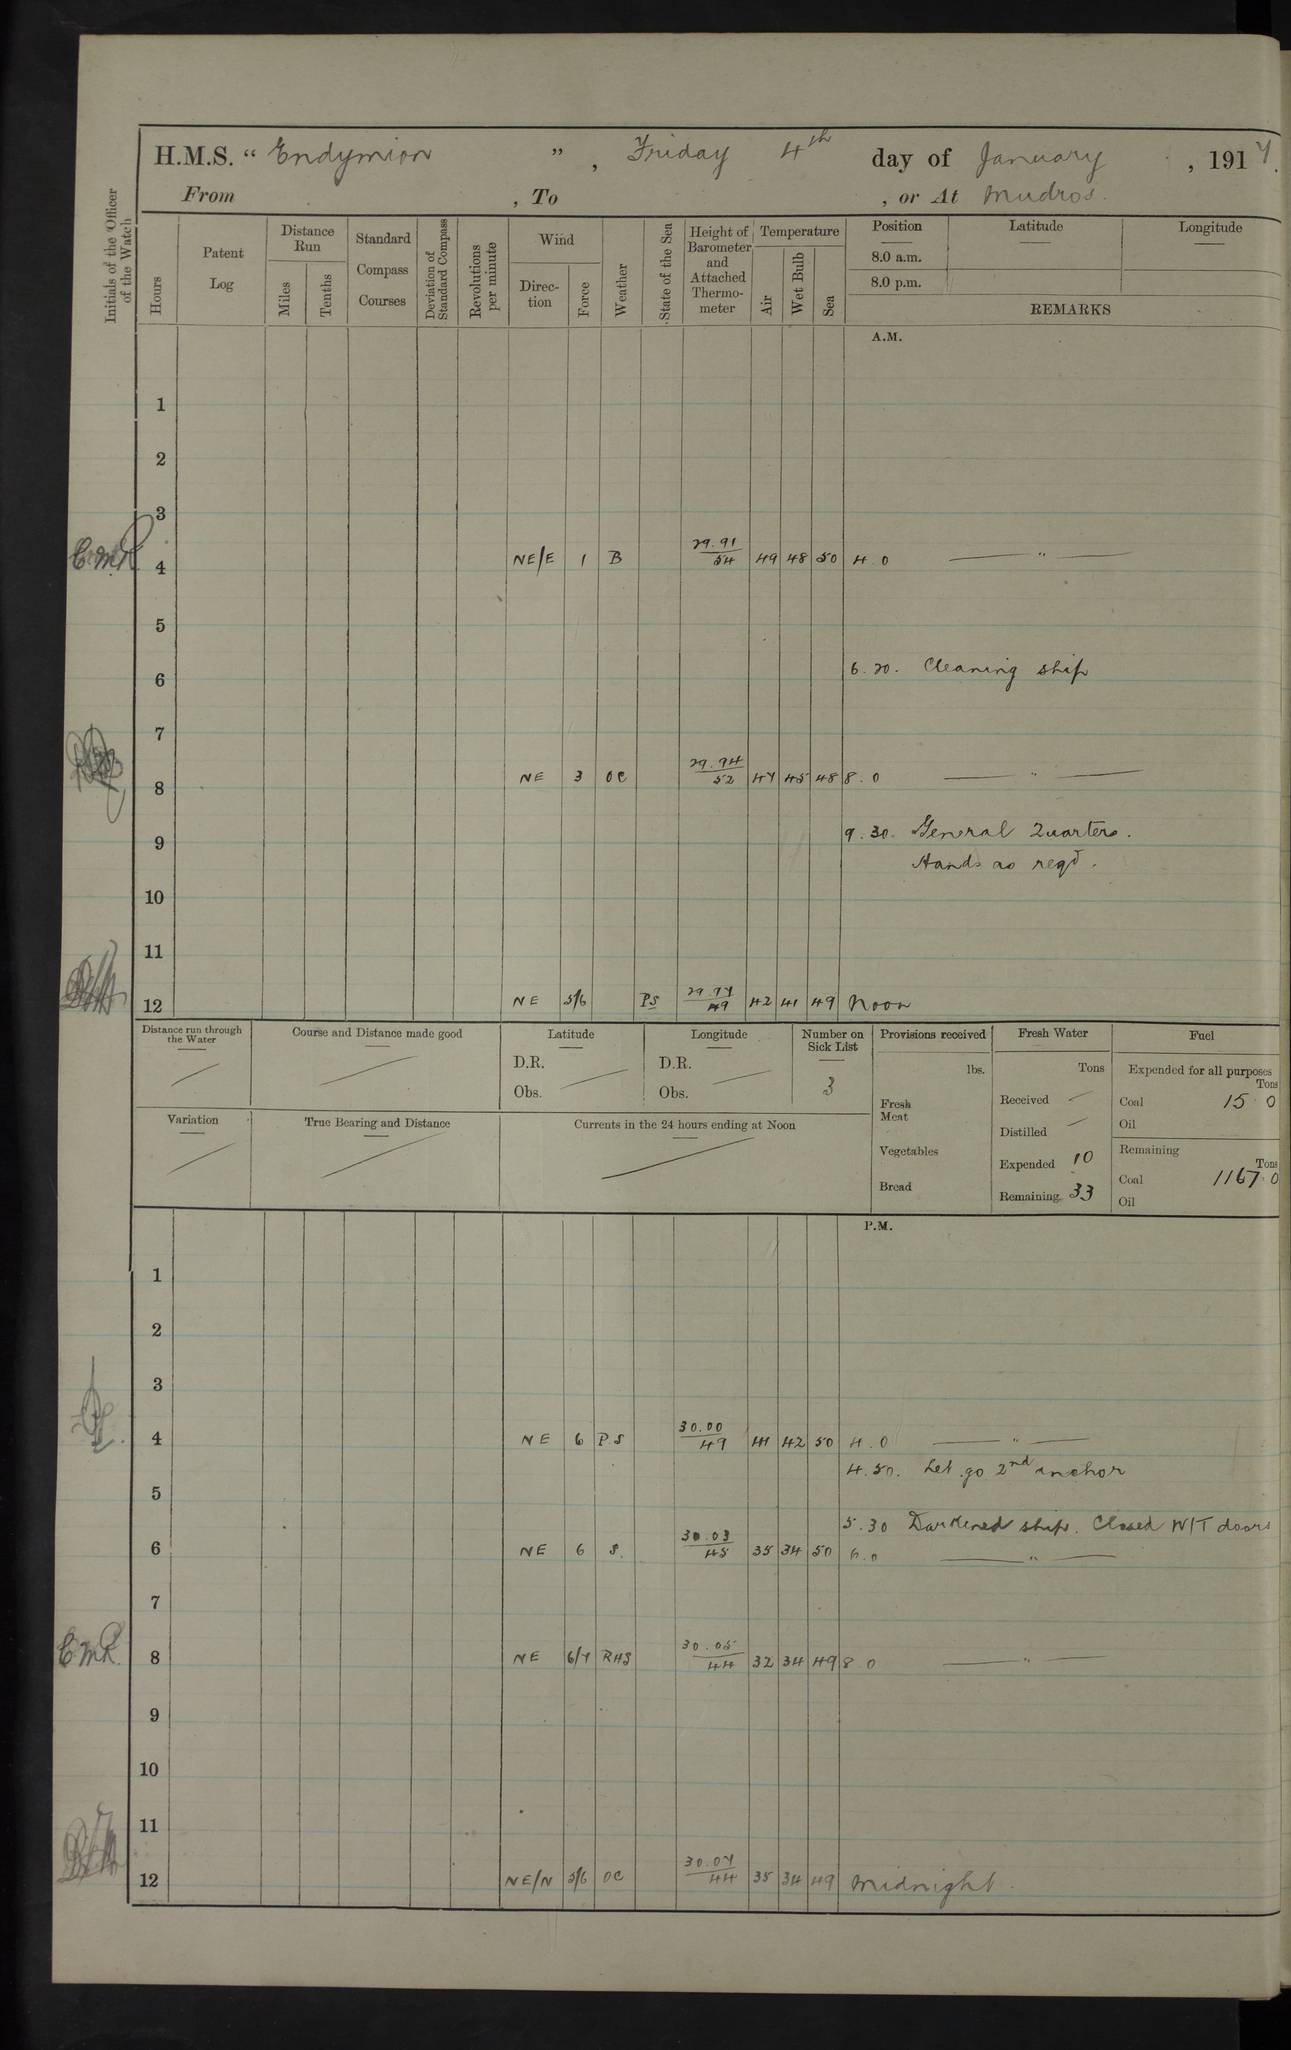 H.M.S. “ Endymion ”, Friday 4th day of January, 1917.
From , To , or At Mudros.
Initials of the Officer of the Watch
Hours
Patent Log
Distance Run
Miles
Tenths
Standard Compass Courses
Deviation of Standard Compass
Revolutions per minute
Wind
Direction
Force
Weather
State of the Sea
Height of Barometer and Attached Thermometer
Temperature
Air
Wet Bulb
Sea
Position
Latitude
Longitude
8.0 a.m.
8.0 p.m.
REMARKS
A.M.
1
2
3
C.M.R. 4 NE/E 1 B 29.91 54 49 48 50 4.0 — " —
5
6 6.20. Cleaning ship
7
8 NE 3 OC 29.94 52 47 45 48 8.0 — " —
9 9.30. General Quarters.
Hands as reqd.
10
11
12 NE 5/6 PS 29.97 49 42 41 49 Noon
Distance run through the Water
Course and Distance made good
Latitude
D.R.
Obs.
Longitude
D.R.
Obs.
Number on Sick List
3
Provisions received
lbs.
Fresh Meat
Vegetables
Bread
Fresh Water
Tons
Received
Distilled
Expended 10
Remaining 33
Fuel
Expended for all purposes
Tons
Coal 15.0
Oil
Remaining
Tons
Coal 1167.0
Oil
Variation
True Bearing and Distance
Currents in the 24 hours ending at Noon
P.M.
1
2
3
4 NE 6 P.S 30.00 49 41 42 50 4.0 — " —
4.50. Let go 2nd anchor
5
5.30 Darkened ship. Closed W/T doors
6 NE 6 S. 30.03 45 35 34 50 6.0 — " —
7
C.M.R. 8 NE 6/7 RHS 30.05 44 32 34 49 8.0 — " —
9
10
11
12 NE/N 5/6 OC 30.07 44 35 34 49 Midnight.